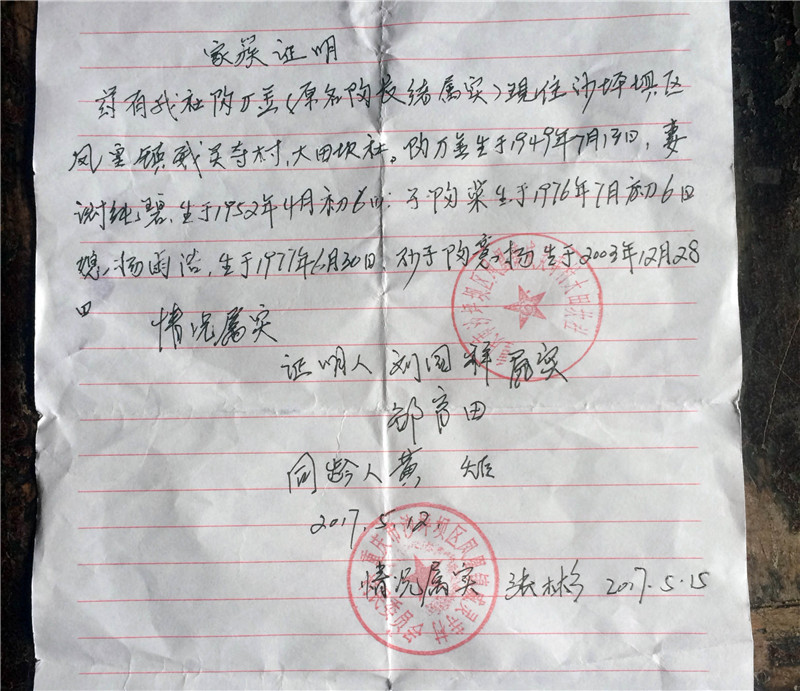 家簇证明
药有我社陶万益(原名陶长绪属实)现住沙坪坝区
凤凰镇威灵寺村,大田坎社。陶万益生于1949年7月13日,妻
谢纯碧,生于1952年4月初6日;子陶荣生于1976年7月初6日
媳:杨雨洛,生于1977年6月30日;孙子陶 扬生于2003年12月28
日
情况属实
证明人 刘国祥属实
邹 田
同龄人黄
2017.5.12
情况属实 张彬 2017.5.15
重庆市沙坪坝区凤凰镇威灵寺村
民委员会